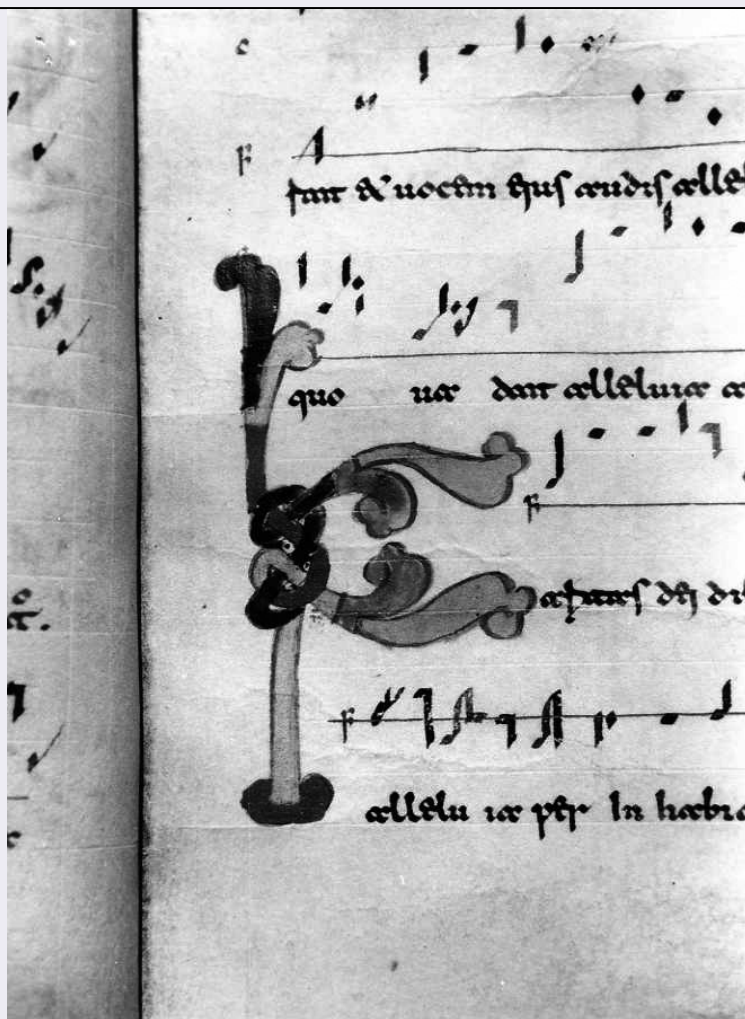 rat & uocem eius audis alle
quo ua dat alleluia a
Karitas dei di
allelu ia per In habi